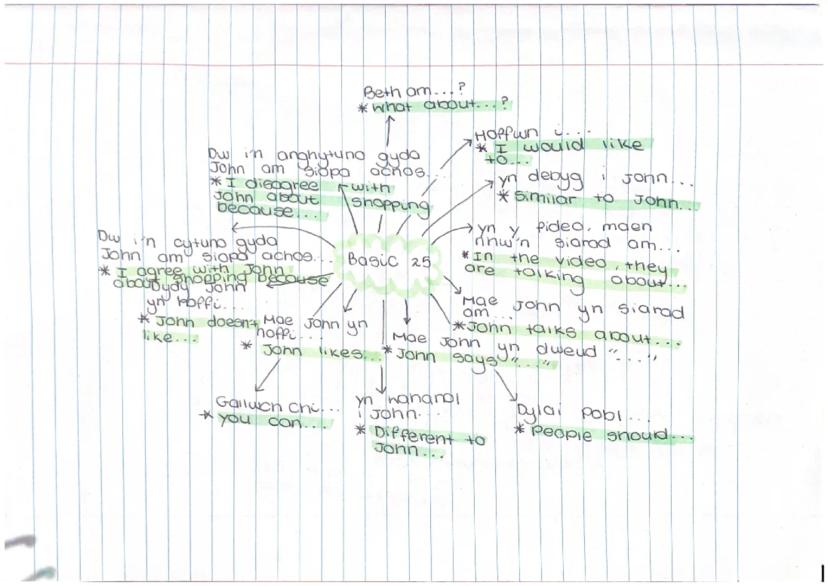 Beth am...?
* what about...?
Hoffwn i...
* I would like
to...
yn debyg i John...
* Similar to John...
yn y fideo, maen
nhw'n siarad am...
* In the video, they
are talking about...
Mae John yn siarad
am...
* John talks about...
Dylai pobl...
* People should...
Mae John yn dweud "....."
* John says "....."
yn wahanol
i John...
* Different to
John...
Mae John yn
hoffi...
* John likes...
Gallwch chi...
* you can...
dydy John
yn hoffi...
* John doesn't
like...
Dw i'n cytuno gyda
John am siopa achos...
* I agree with John
about shopping because
Dw i'n anghytuno gyda
John am siopa achos...
* I disagree with
John about shopping
because...
Basic 25